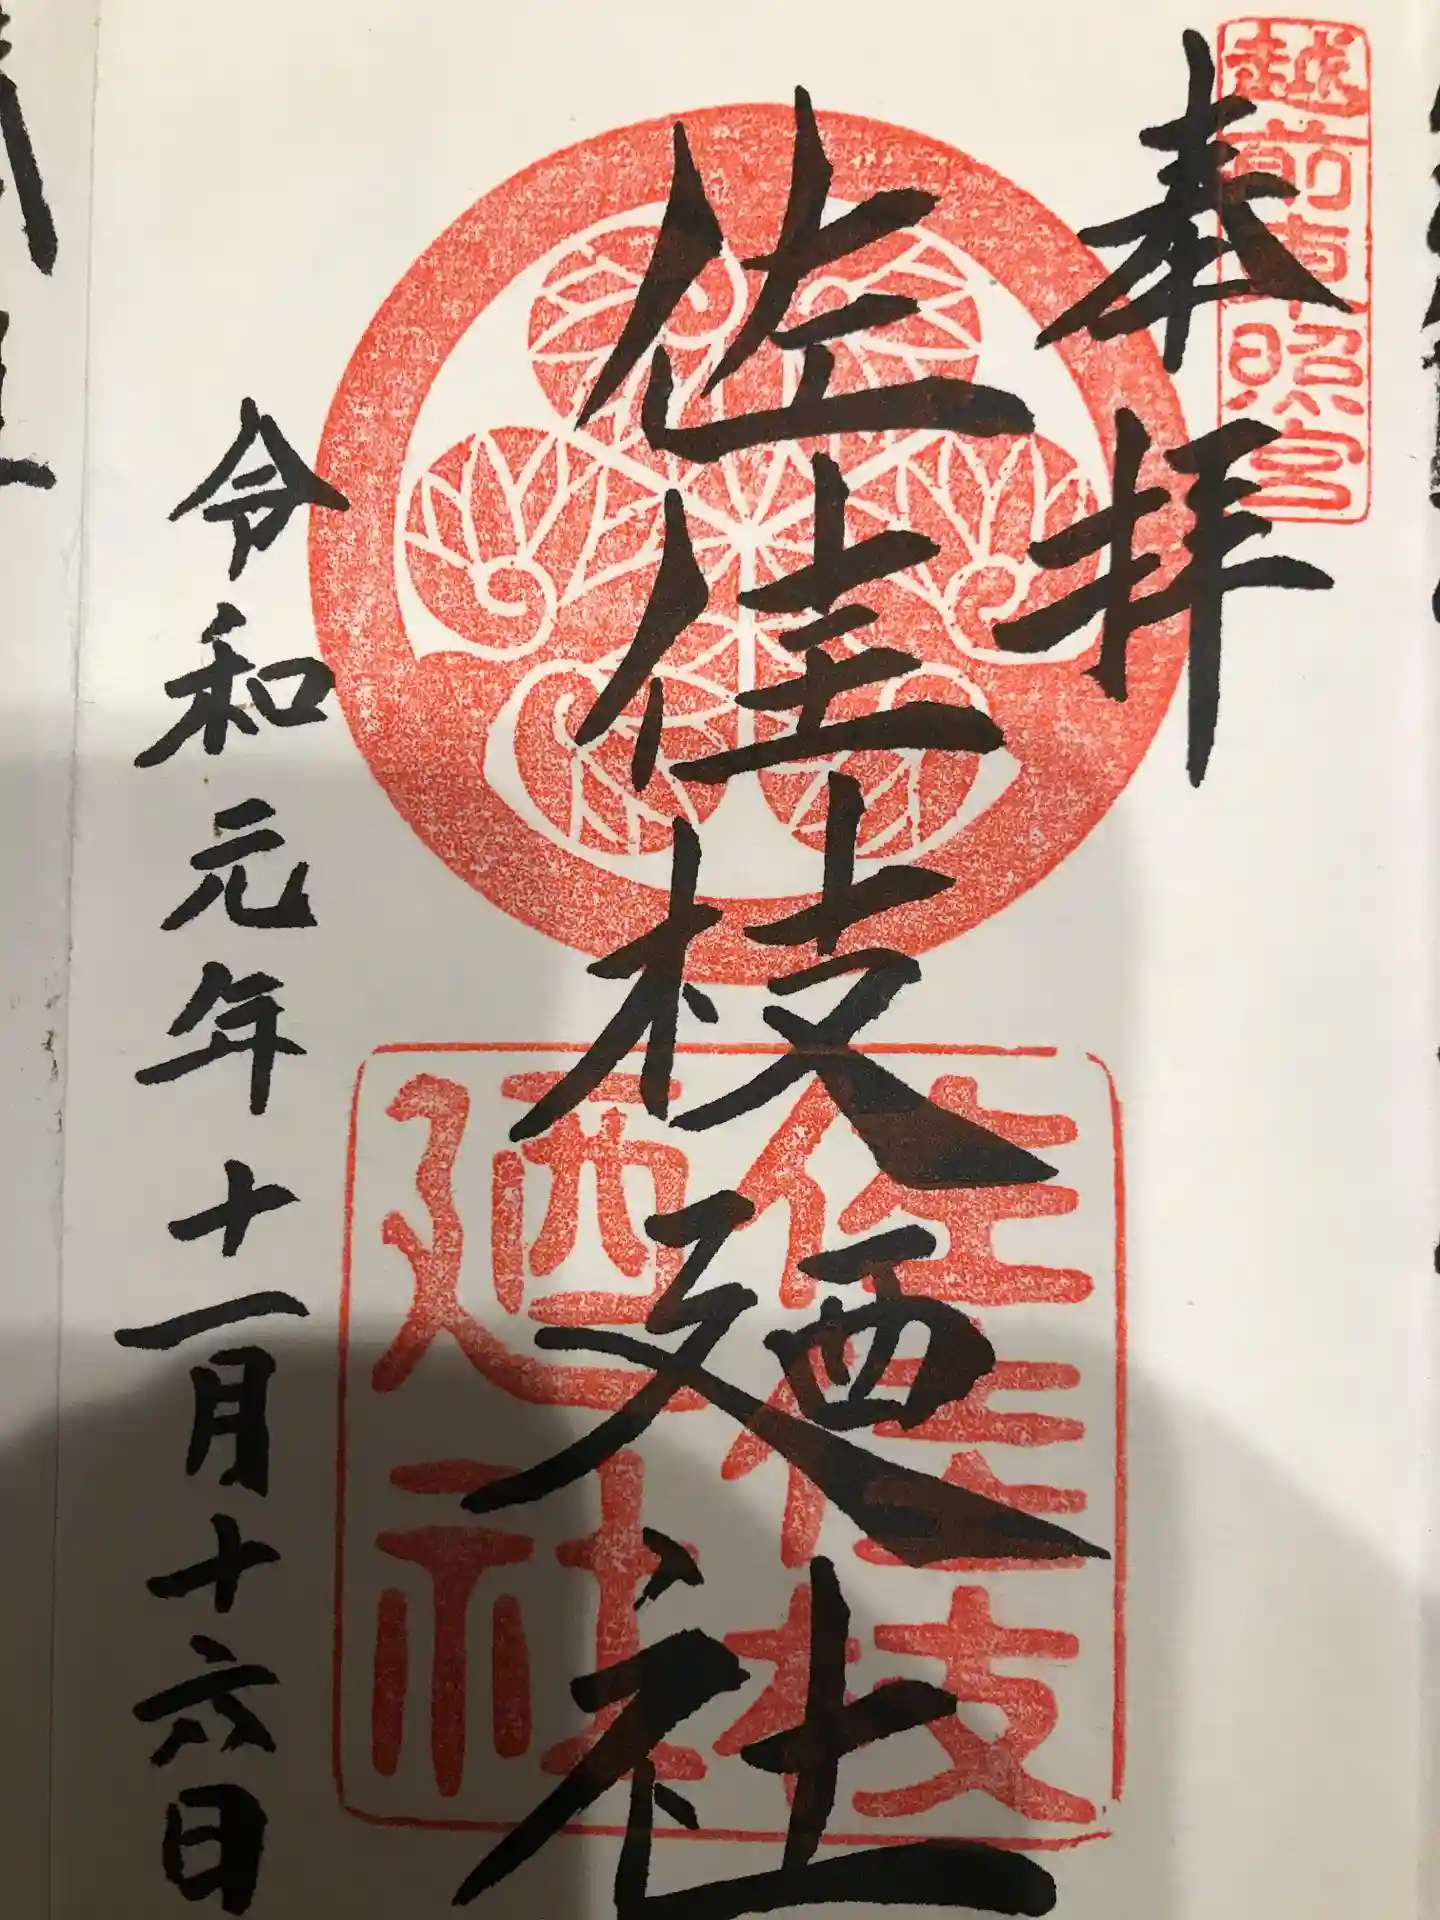 越前東照宮
奉拝
佐佳枝廼社
佐佳枝
廼社
令和元年十一月十六日